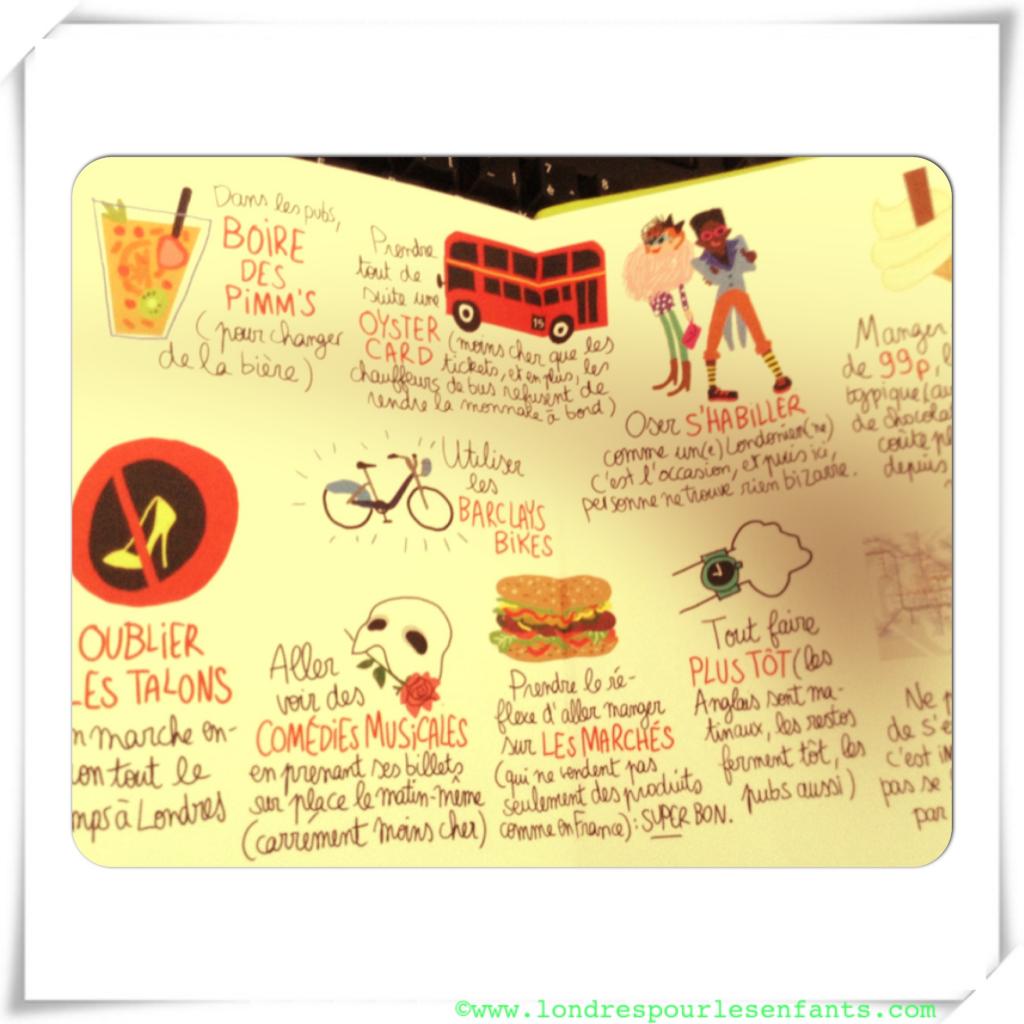 Dans les pubs,
BOIRE
DES
PIMM'S
(pour changer
de la bière)
Prendre
tout de
suite une
OYSTER
CARD (moins cher que les
tickets, et en plus, les
chauffeurs de bus refusent de
rendre la monnaie à bord)
19
Oser S'HABILLER
comme un(e) Londonien(ne)
c'est l'occasion, et puis ici,
personne ne trouve rien bizarre.
Manger
de 99p,
typique (au
de chocola
coûte pl
depuis
OUBLIER
LES TALONS
n marche en-
on tout le
mps à Londres
Utiliser
les
BARCLAYS
BIKES
Aller
voir des
COMÉDIES MUSICALES
en prenant ses billets
sur place le matin-même
(carrément moins cher)
Prendre le ré-
flexe d'aller manger
sur LES MARCHÉS
(qui ne vendent pas
seulement des produits
comme en France): SUPER BON.
Tout faire
PLUS TÔT (les
Anglais sont ma-
tinaux, les restos
ferment tôt, les
pubs aussi)
Ne p
de s'e
c'est in
pas se
par
©www.londrespourlesenfants.com